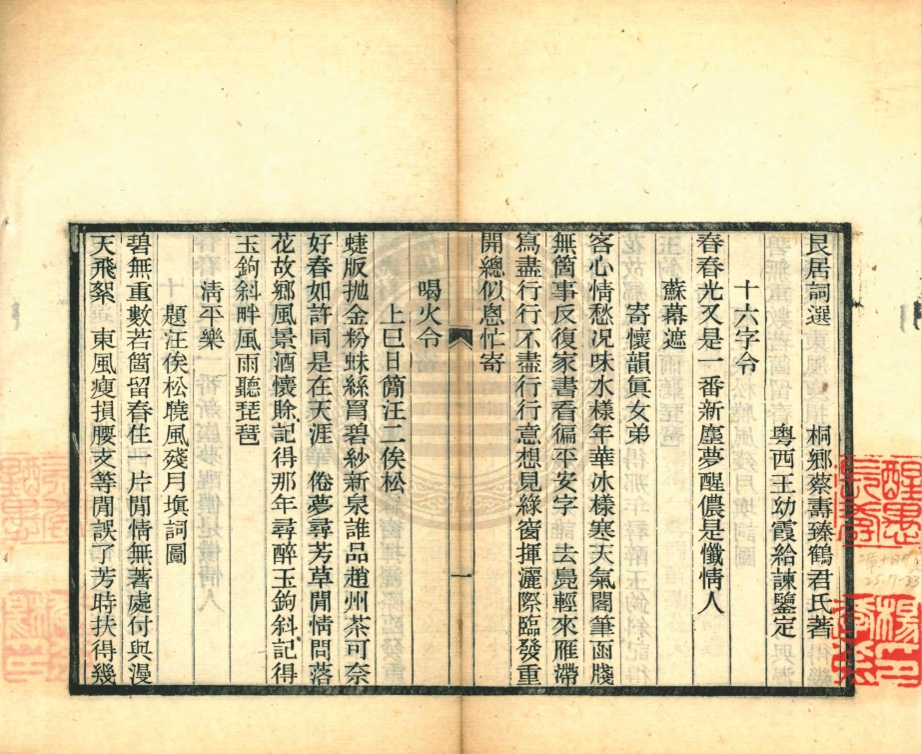 艮居詞選
桐鄉蔡壽臻鶴君氏著
粵西王幼霞給諫鑒定
十六字令
春春光又是一番新塵夢醒儂是懺情人
蘇幕遮
寄懷韻眞女弟
客心情愁况味水樣年華冰樣寒天氣閣筆函牋
無箇事反復家書看徧平安字 去鳧輕來雁滯
寫盡行行不盡行行意想見綠窗揮灑際臨發重
開總似悤忙寄
一
喝火令
上巳日簡汪二俟松
蜨版抛金粉蛛絲罥碧紗新泉誰品趙州茶可奈
好春如許同是在天涯 倦夢尋芳草閒情問落
花故鄉風景酒懷賒記得那年尋醉玉鉤斜記得
玉鉤斜畔風雨聽琵琶
淸平樂
題汪俟松曉風殘月塡詞圖
碧無重數若箇留春住一片閒情無著處付與漫
天飛絮 東風瘦損腰支等閒誤了芳時扶得幾